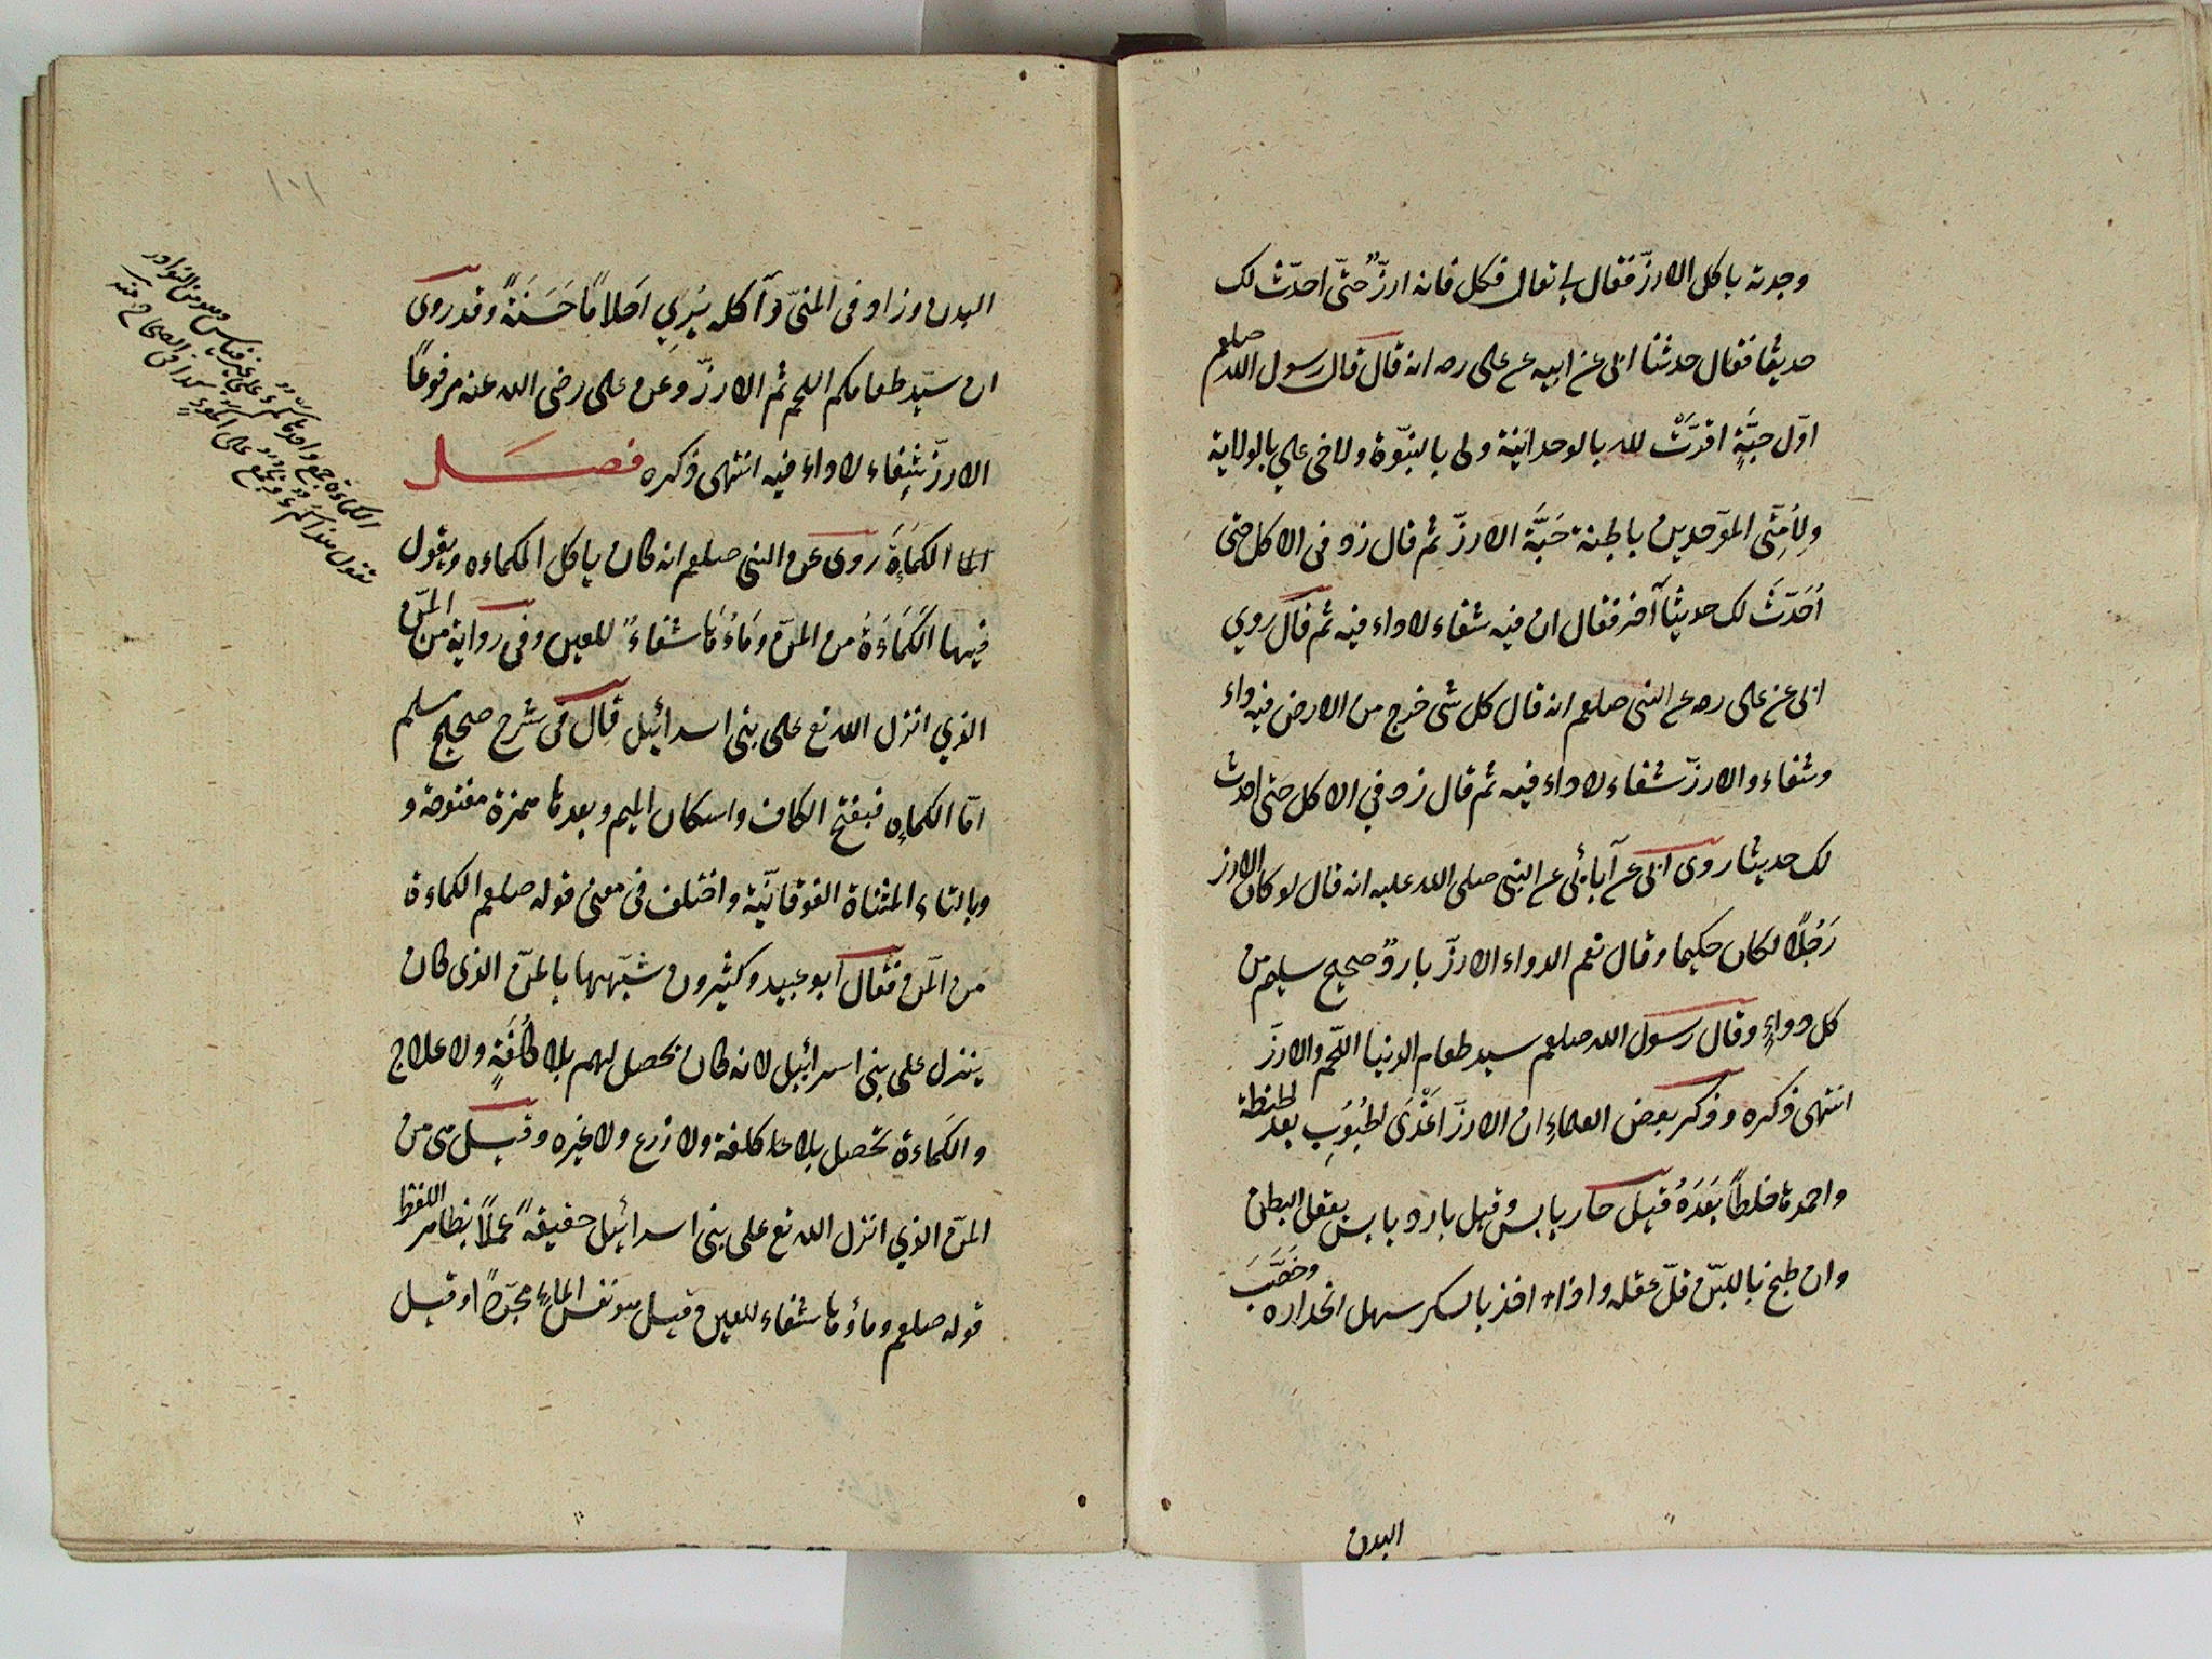 وجدته ياكل الارزّ فقال لي تعال فكل فانه ارزٌّ حتّى احدّث لك
حديثا فقال حدثنا ابى عن ابيه عن على رضه انه قال قال رسول الله صلعم
اوّل حبّةٍ اقرّت لله بالوحدانيّة ولى بالنبوّة ولاخى علي بالولاية
ولِأمّتى الموّحدين بالجنة حَبَّة الارزّ ثم قال زد فى الاكل حتى
اُحَدّثَ لك حديثاً آخر فقال ان فيه شفاء لاداء فيه ثم قال روي
ابى عن على رضه عن النبى صلعم انه قال كل شى خرج من الارض فيه داء
وشفاء والارزّ شفاء لاداء فيه ثم قال زد في الاكل حتى احدث
لك حديثا روى ابى عن آبائى عن النبى صلى الله عليه انه قال لو كان الارز
رَجُلاً لكان حكيما وقال نعم الدواء الارزّ باردٌ صحيح سليم من
كل دواءٍ وقال رسول الله صلعم سيد طعام الدنيا اللّحم والارزّ
انتهى ذكره وذكر بعض العلماءِ ان الارزّ اَغْذَى لحُبُوبِ بعد الحنطة
واحمدها خلطاً بَعْدَهُ قيل حار يابس وقيل بارد يابس يعقل البطن
وان طبخ باللبن قلّ عقله واذا اخذ بالسكر سهل انحداره وخَصَّبَ
البدن
البدن وزاد فى المنىّ وآكله يَرِي اَحلاماً حَسَنَةً وقد روى
ان سيّد طعامكم اللحم ثم الارزّ وعن على رضى الله عنه مرفوعاً
الارزّ شِفاء لاداءَ فيه انتهى ذكره فصل
اما الكمَاةَ روى عن النبى صلعم انه كان ياكل الكماءه ويقول
فيها الكَمَاءَةُ من المنّ ومَاءُهَا شفاءً للعين وفى رواية من المنّ
الذي انزل الله تع على بنى اسرائيل قال فى شرح صحيح مسلم
امّا الكماه فبفتح الكاف واسكان الميم وبعدها همزة مفتوحة و
وبالتاء المثناة الفوقانيّة واختلف فى معنى قوله صلعم الكماءة
من المن فقال ابو عبيد وكثيرون شبّهها بالمنّ الذى كان
ينزل على بنى اسرائيل لانه كان يحصل لهم بلا كلفَةٍ ولا علاج
والكماءة تحصل بلا كلفة ولا زرع ولا غيره وقيل هى من
المنّ الذي انزل الله تع على بنى اسرائيل حقيقةً عملاً بظاهر اللفظ
قوله صلعم وماؤها شفاء للعين قيل هو نفس الماءِ مجرّداً وقيل
الكماءة جمع واحدها كمءٌ على غير قياس وهو من النوادر
تقول هذا كمءٌ على اكموءٍ كذا فى الصحاح منه
١٠١